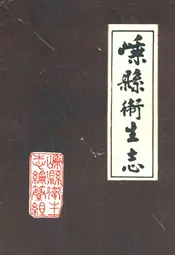 嵊縣衛生志
嵊縣衛生
志編纂組